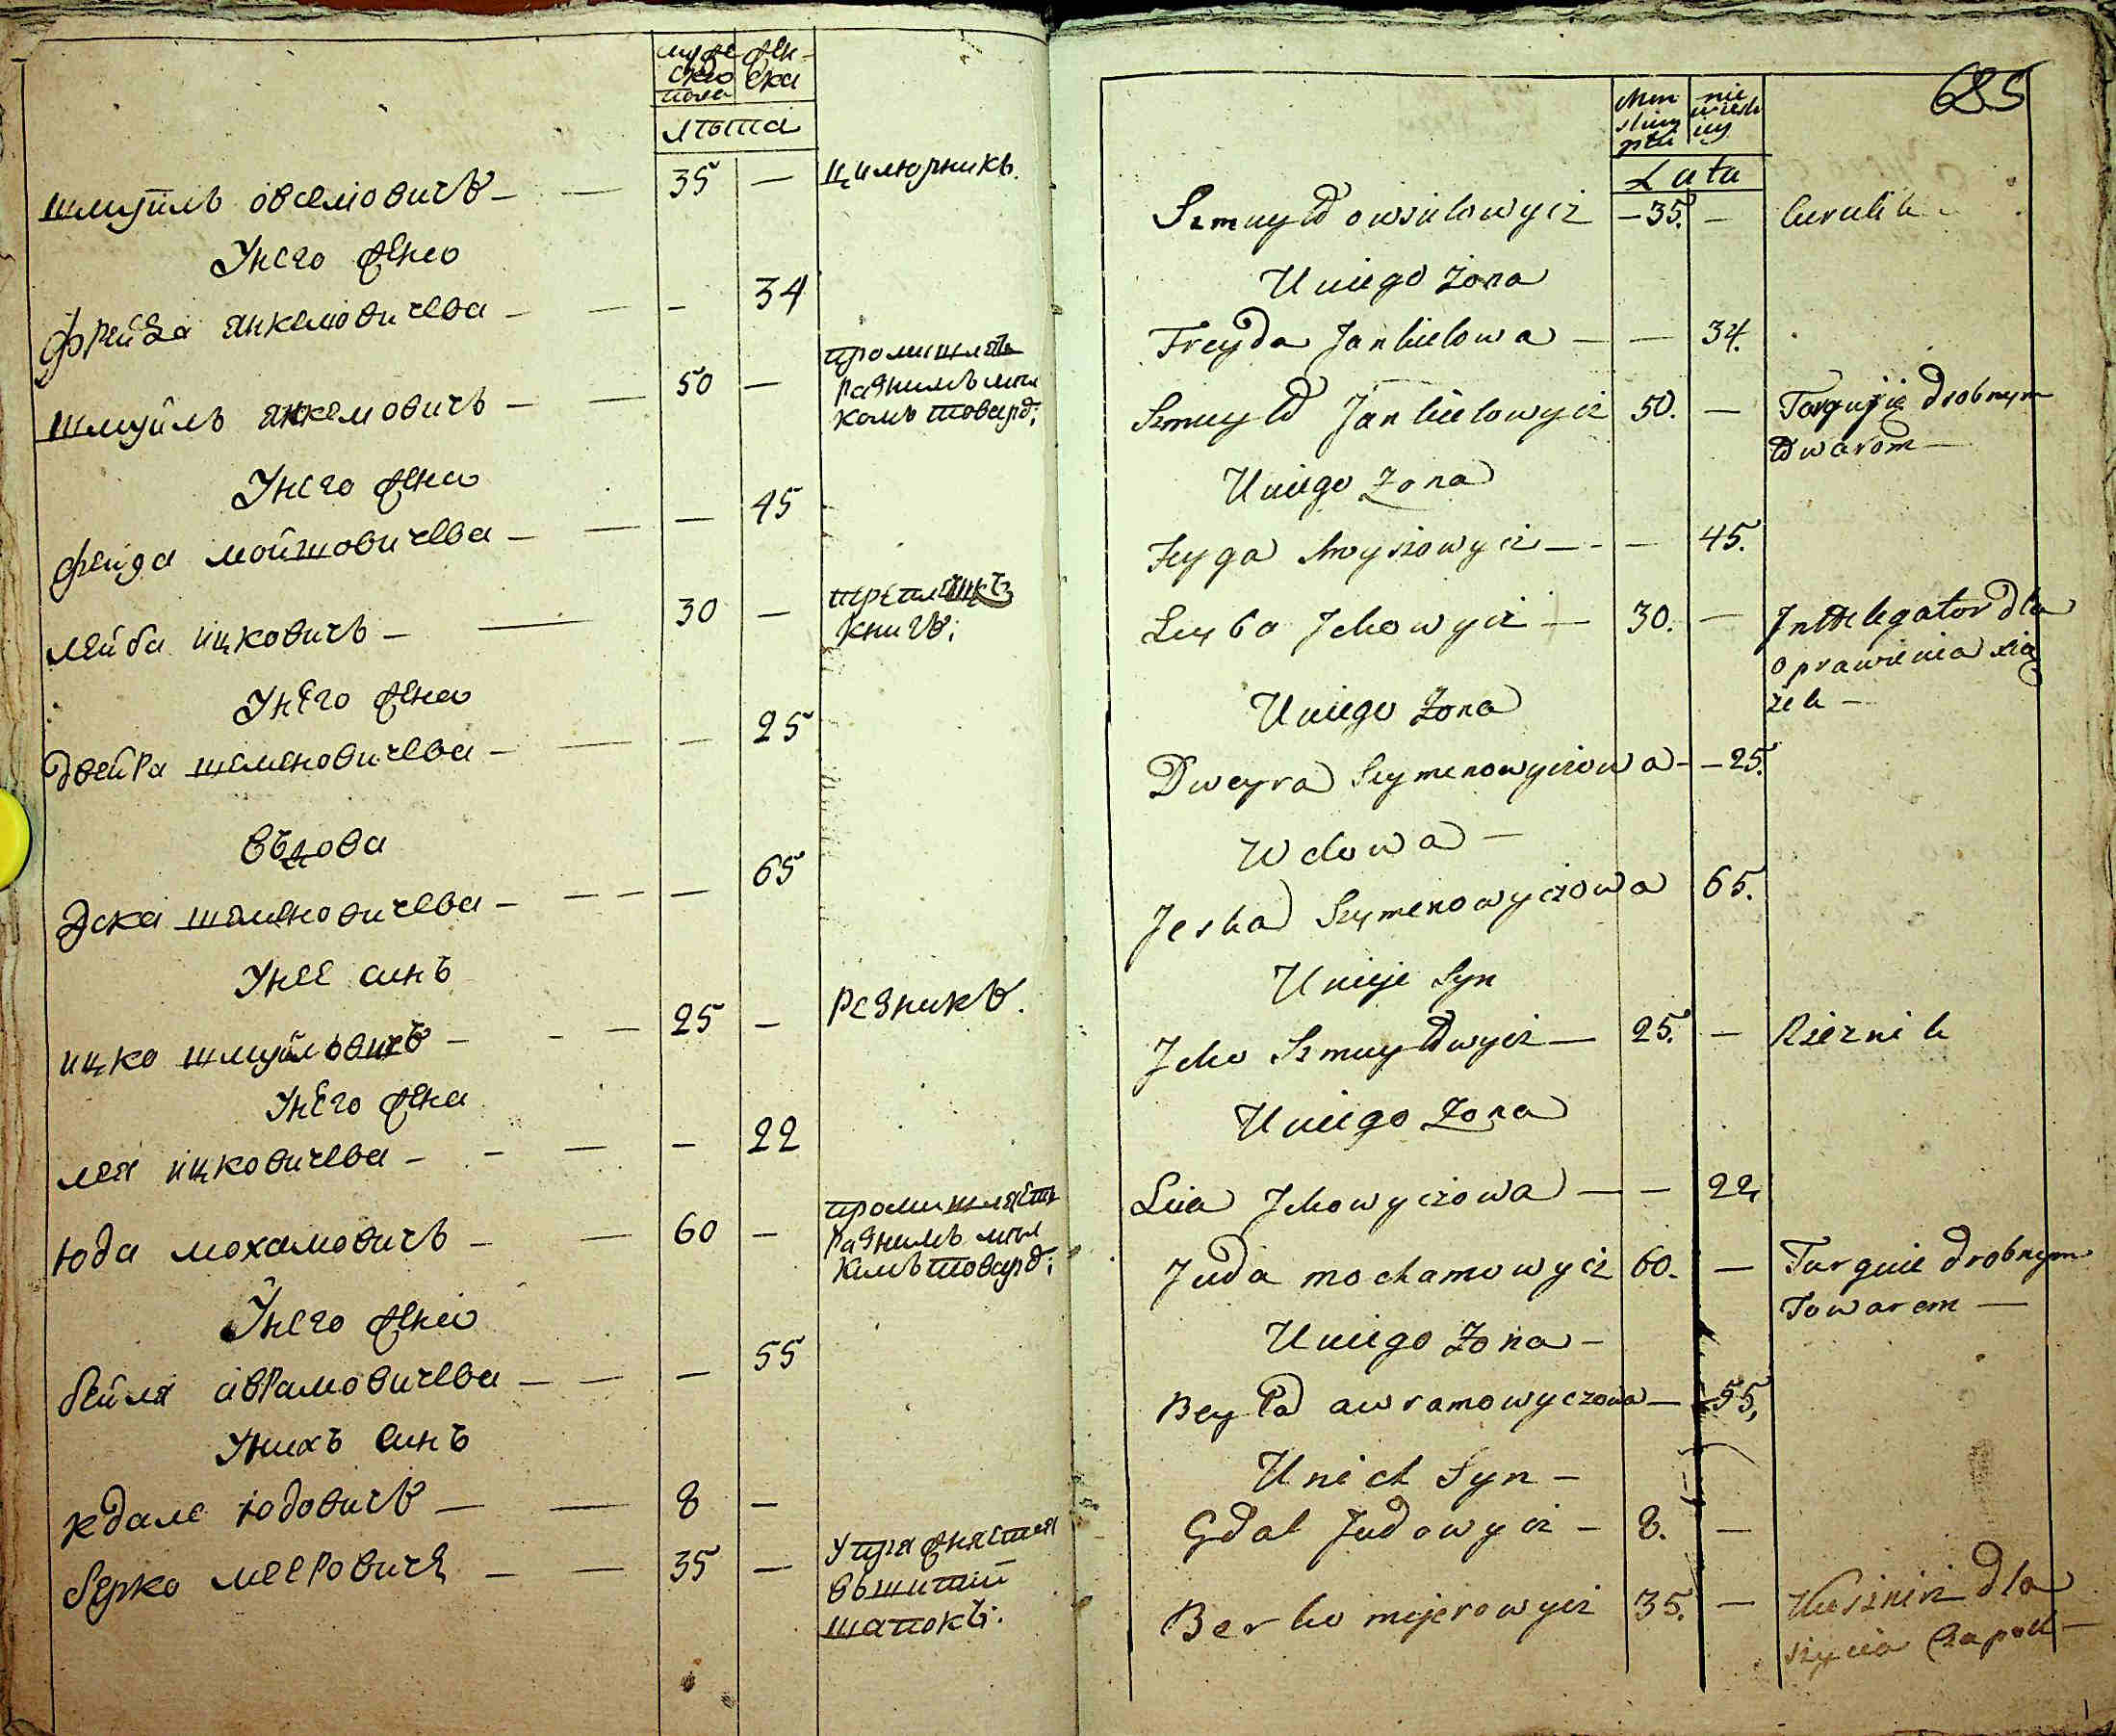 муже
ско
пола
жен-
ска
лѣта
шмуйль овселовичъ — — 35 — цилюрникъ.
Унего жена
фрейда янкеловичева — — — 34
шмуйль янкеловичъ — — 50 — промишляетъ
разнимъ мѣл
комъ товард;
Унего жена
фейга мойшовичева — — — 45
лейба ицковичъ — — 30 —
книгъ;
Унего жена
двейра шеменовичева — — — 25
вдова
эска шеменовичева — — — — 65
Унее синъ
ицко шмуйловичъ — — — 25 — резникъ.
Унего жена
лея ицковичева — — — — 22
юда мохамовичъ — — 60 — промишляетъ
разнимъ мѣл
кимъ товард;
Унего жена
бейля аврамовичева — — — 55
Унихъ синъ
кдале юдовичъ — — 8 —
берко мееровичъ — — 35 — Упражняется
въшитіи
шапокъ:
685
Men
skiey
płci
nie
wiesci
ey
Lata
Szmuyło owsielowycz — 35. — Cerulik
Uniego żona
Freyda Jankielowa — — 34.
Szmuyło Jankielowycz 50. — Targuje drobnym
Towarom —
Uniego Żona
Feyga Moyszowycz — - — 45.
Leyba Ickowycz — 30. — Inteligator dla
oprawienia xią
żek —
Uniego Żona
Dweyra Szymenowyczowa - — 25.
Wdowa —
Jeska Szymenowyczowa 65.
Unieje Syn
Icko Szmuylowycz — 25. — Rzeznik
Uniego Żona
Leia Ickowyczowa — — 22,
Juda mochamowycz 60. — Targuie drobnym
Towarem —
Uniego Żona —
Beyla awramowyczowa — 55,
Unich Syn —
Gdal Judowycz — 8. —
Berko mejerowycz 35. — Kusznierz dla
szycia Czapek —